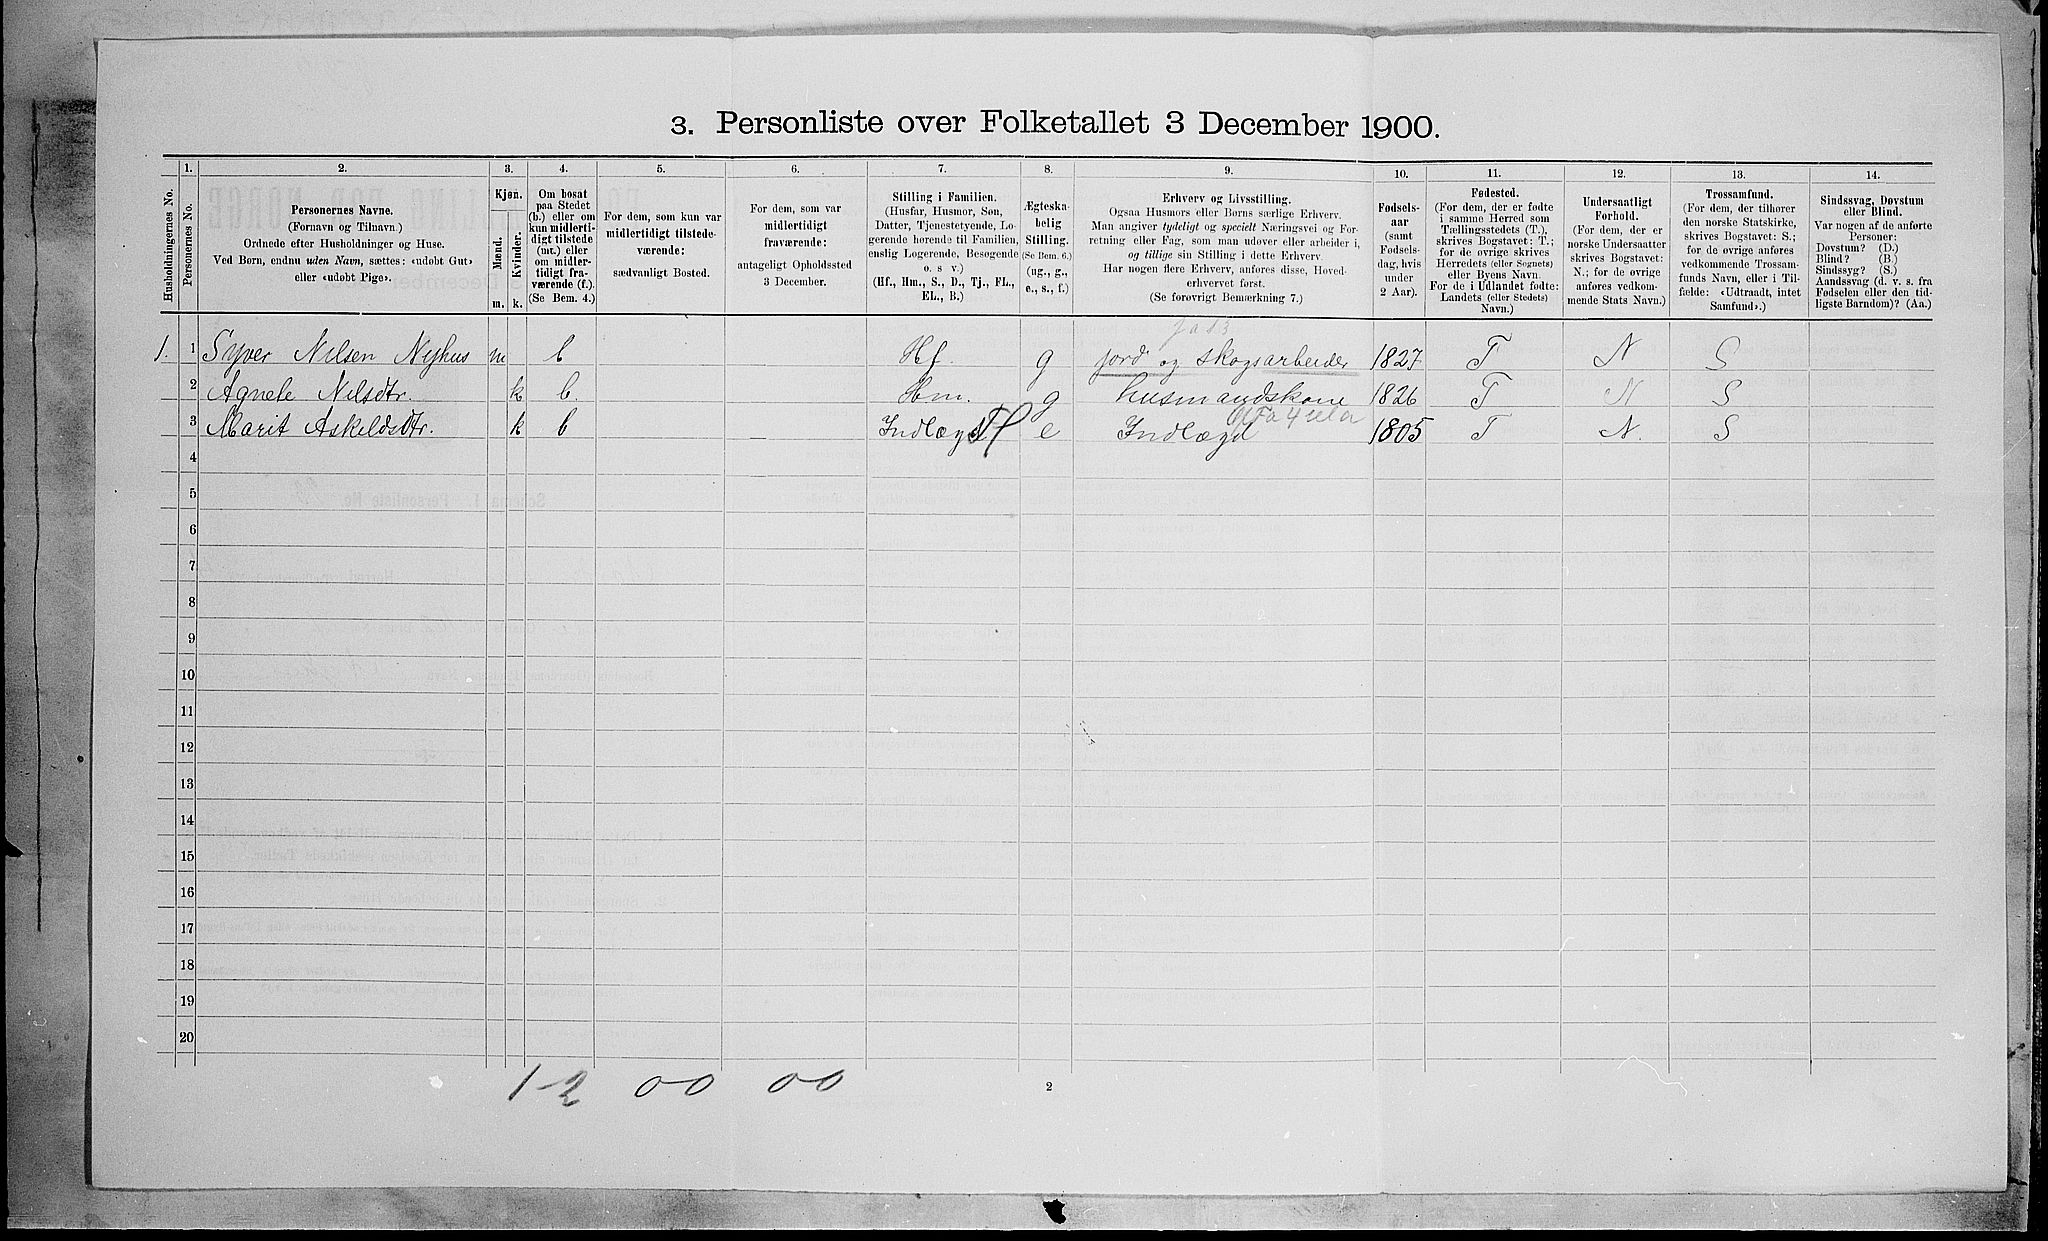 3. Personliste over Folketallet 3 December 1900.
1. 2. 3. 4. 5. 6. 7. 8. 9. 10. 11. 12. 13. 14.
Husholdningernes No.
Personernes No.
Personernes Navne.
(Fornavn og Tilnavn.)
Ordnede efter Husholdninger og Huse.
Ved Børn, endnu uden Navn, sættes: «udøbt Gut»
eller «udøbt Pige».
Kjøn.
Mænd.
Kvinder.
m. k.
Om bosat
paa Stedet
(b.) eller om
kun midlerti-
digt tilstede
(mt.) eller
om midler-
tidigt fra-
værende (f.).
(Se Bem. 4.)
For dem, som kun var
midlertidigt tilstede-
værende:
sædvanligt Bosted.
For dem, som var
midlertidigt
fraværende:
antageligt Opholdssted
3 December.
Stilling i Familien.
(Husfar, Husmor, Søn,
Datter, Tjenestetyende, Lo-
gerende hørende til Familien,
enslig Logerende, Besøgende
o. s v.)
(Hf., Hm., S., D., Tj., FL.,
EL., B.)
Ægteska-
belig
Stilling.
(Se Bem. 6.)
(ug., g.,
e., s., f.)
Erhverv og Livsstilling.
Ogsaa Husmors eller Børns særlige Erhverv.
Man angiver tydeligt og specielt Næringsvei og For-
retning eller Fag, som man udøver eller arbeider i,
og tillige sin Stilling i dette Erhverv.
Har nogen flere Erhverv, anføres disse, Hoved-
erhvervet først.
(Se forøvrigt Bemærkning 7.)
Fødsels-
aar
(samt
Fødsels-
dag, hvis
under
2 Aar).
Fødested.
(For dem, der er fødte
i samme Herred som
Tællingsstedets (T.),
skrives Bogstavet: T.;
for de øvrige skrives
Herredets (eller Sognets)
eller Byens Navn.
For de i Udlandet fødte:
Landets (eller Stedets)
Navn.)
Undersaatligt
Forhold.
(For dem, der er
norske Undersaatter
skrives Bogstavet:
N.; for de øvrige
anføres vedkom-
mende Stats Navn.)
Trossamfund.
(For dem, der tilhører
den norske Statskirke,
skrives Bogstavet: S.;
for de øvrige anføres
vedkommende Trossam-
funds Navn, eller i Til-
fælde: «Udtraadt, intet
Samfund».)
Sindssvag, Døvstum
eller Blind.
Var nogen af de anførte
Personer:
Døvstum? (D.)
Blind? (B.)
Sindssyg? (S.)
Aandssvag (d. v. s. fra
Fødselen eller den tid-
ligste Barndom)? (Aa.)
1. 1 Syver Nilsen Nyhus m b Hf. g jord og skogsarbeider 1827 T N S
2 Agnete Nilsdtr. k b. Hm. g husmandskone 1826 T N S
3 Marit Askeldsdtr. k b Indlægd e Indlægd 1805 T N. S
4
5
6
7
8
9
10
11
12
13
14
15
16
17
18
19
20
1-2 00 00
2